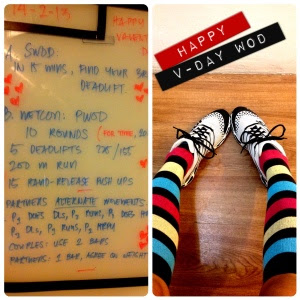 14-2-13
HAPPY
A. SWOD:
IN 15 MINS, FIND YOUR
DEADLIFT.
B. METCON: PWSD
10 ROUNDS (FOR TIME,
5 DEADLIFTS 225/155
250 M RUN
15 HAND-RELEASE PUSH UPS
PARTNERS ALTERNATE MOVEMENTS
P1 DOES DLS, P2 RUNS, P1 DOES
P2 DLS, P1 RUNS, P2 HRPU
COUPLES: USE 2 BARS
PARTNERS: 1 BAR, AGREE ON WEIGHT
HAPPY
V-DAY WOD